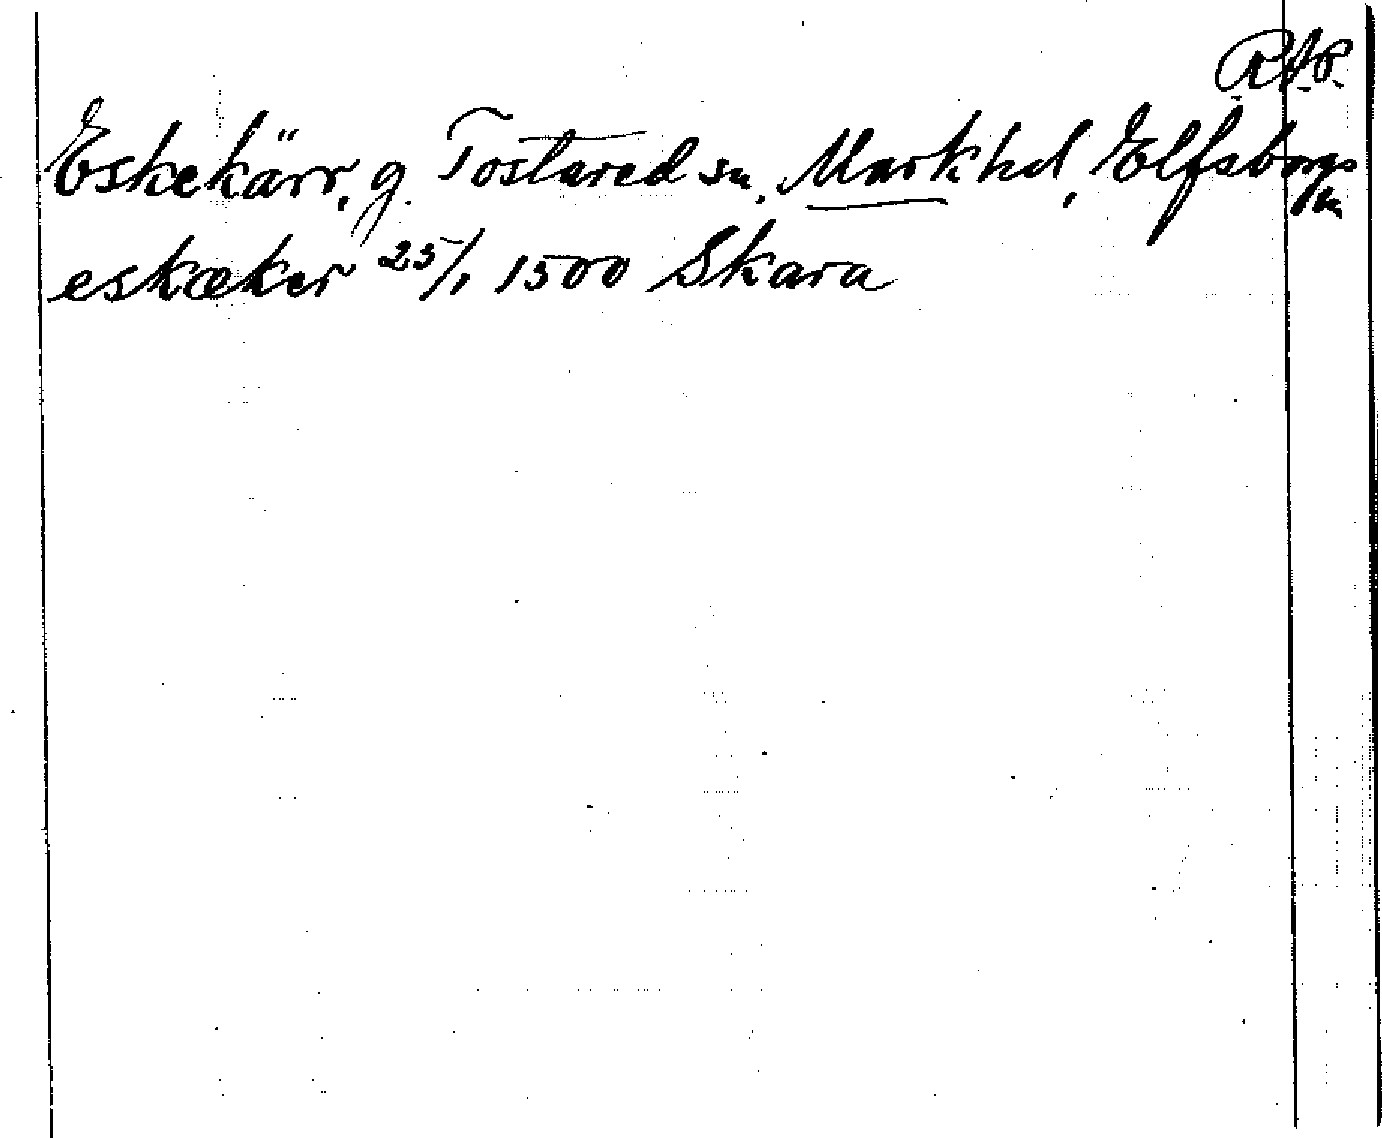 R.A.P.
Eskekärr, g. Tostared sn, Mark hd, Elfsborgs ln
eskæker 25/1 1500 Skara